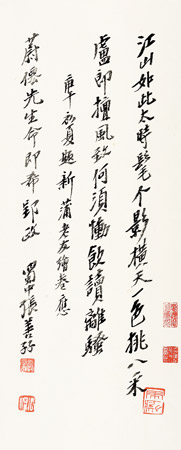 江山如此太時髦个影橫天一色挑八采
盧即擅風致何須慟飲讀離騷
庚午初夏題新蒲老友繪卷應
蔚儂先生命即希郢政 蜀中張善孖